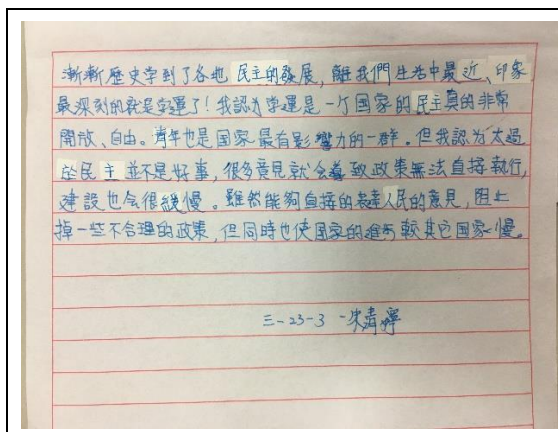 漸漸歷史学到了各地民主的發展，離我們生活中最近、印象
最深刻的就是学運了！我認为学運是一个国家的民主真的非常
開放、自由。青年也是国家最有影響力的一群。但我認为太過
於民主並不是好事，很多意見就会導致政策無法直接執行，
建設也会很緩慢。雖然能夠直接的表達人民的意見，阻止
掉一些不合理的政策，但同時也使国家的進步較其它国家慢。
三-23-3 朱清